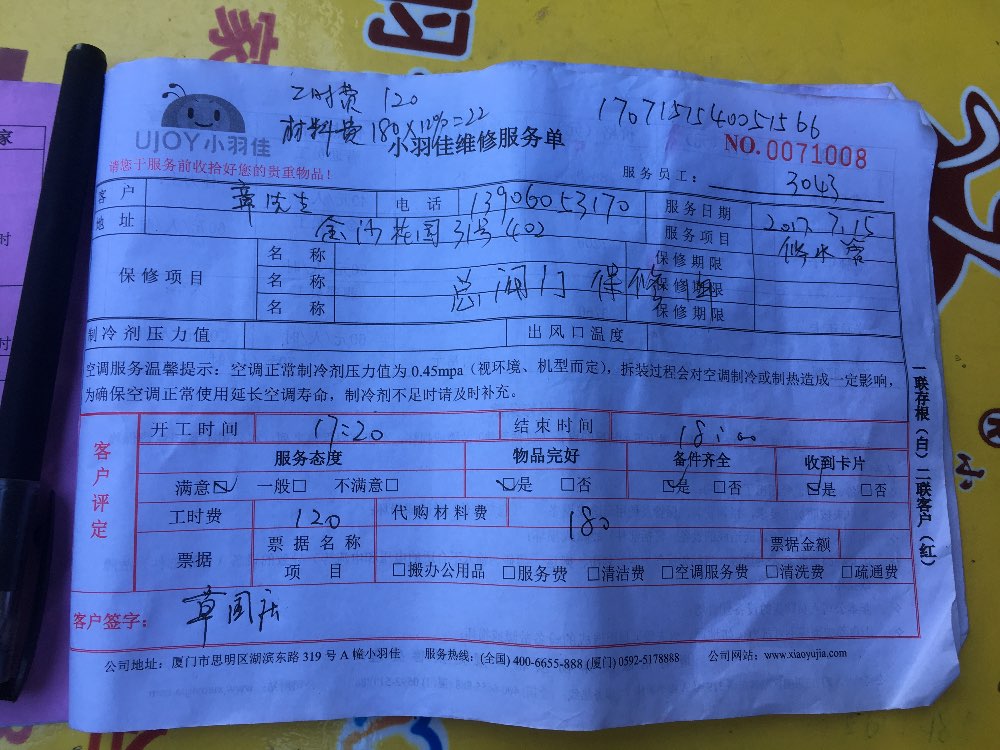 工时费 120
材料费180×12%=22
1707157540051566
UJOY小羽佳
小羽佳维修服务单
NO.0071008
请您于服务前收拾好您的贵重物品！
服务员工： 3043
客户 章先生 电话 13906053170 服务日期 2017 7.15
地址 金沙花园31号402 服务项目 修水管
保修项目 名称 保修期限
名称 总阀门 保修 保修期限
名称 保修期限
制冷剂压力值 出风口温度
空调服务温馨提示：空调正常制冷剂压力值为 0.45mpa（视环境、机型而定），拆装过程会对空调制冷或制热造成一定影响，
为确保空调正常使用延长空调寿命，制冷剂不足时请及时补充。
客户评定
开工时间 17:20 结束时间 18:00
服务态度 物品完好 备件齐全 收到卡片
满意☑ 一般□ 不满意□ ☑是 □否 ☑是 □否 ☑是 □否
工时费 120 代购材料费 180
票据 票据名称 票据金额
项目 □搬办公用品 □服务费 □清洁费 □空调服务费 □清洗费 □疏通费
客户签字： 章国
公司地址：厦门市思明区湖滨东路 319 号 A 幢小羽佳 服务热线：(全国) 400-6655-888 (厦门) 0592-5178888 公司网站：www.xiaoyujia.com
一联存根（白）二联客户（红）
家